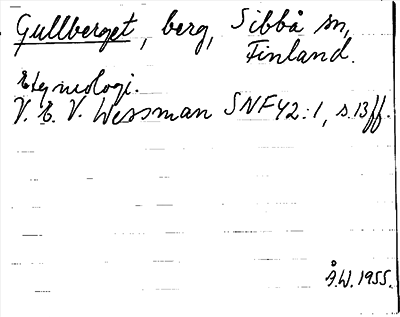 Gullberget, berg, Sibbå sn,
Finland.
Etymologi.
V. E. V. Wessman SNF 42:1, s. 13 ff.
Å.W. 1955.